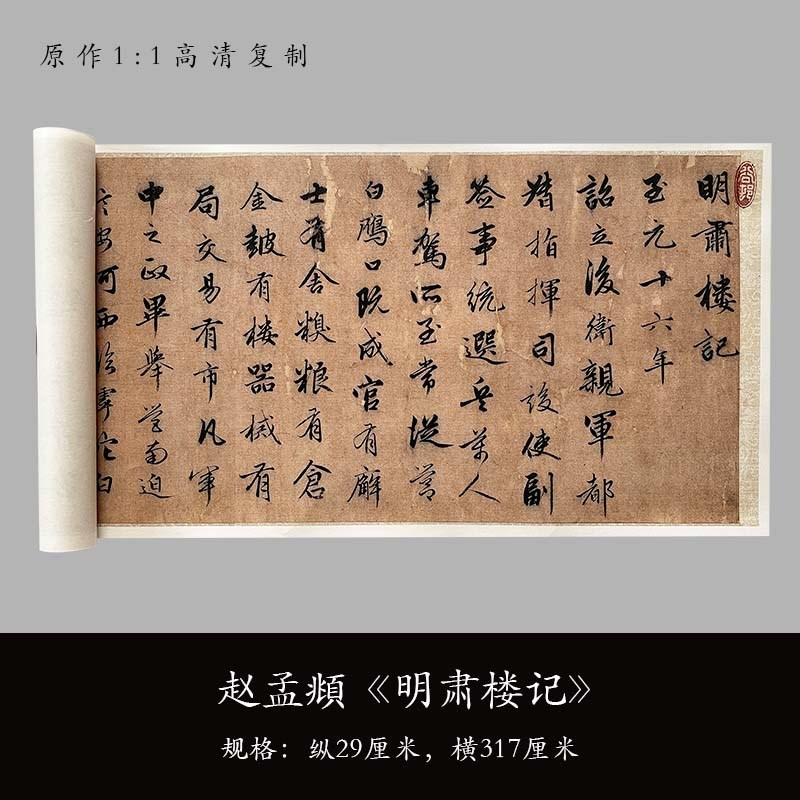 原作1:1高清复制
明肅楼記
至元十六年
詔立後衛親軍都
指揮司設使副
簽事統選兵萬人
車駕所至常從營
白鴈口既成官有廨
士有舍糗粮有倉
金皷有楼器械有
局交易有市凡軍
中之政畢舉營南迫
赵孟頫《明肃楼记》
规格：纵29厘米，横317厘米